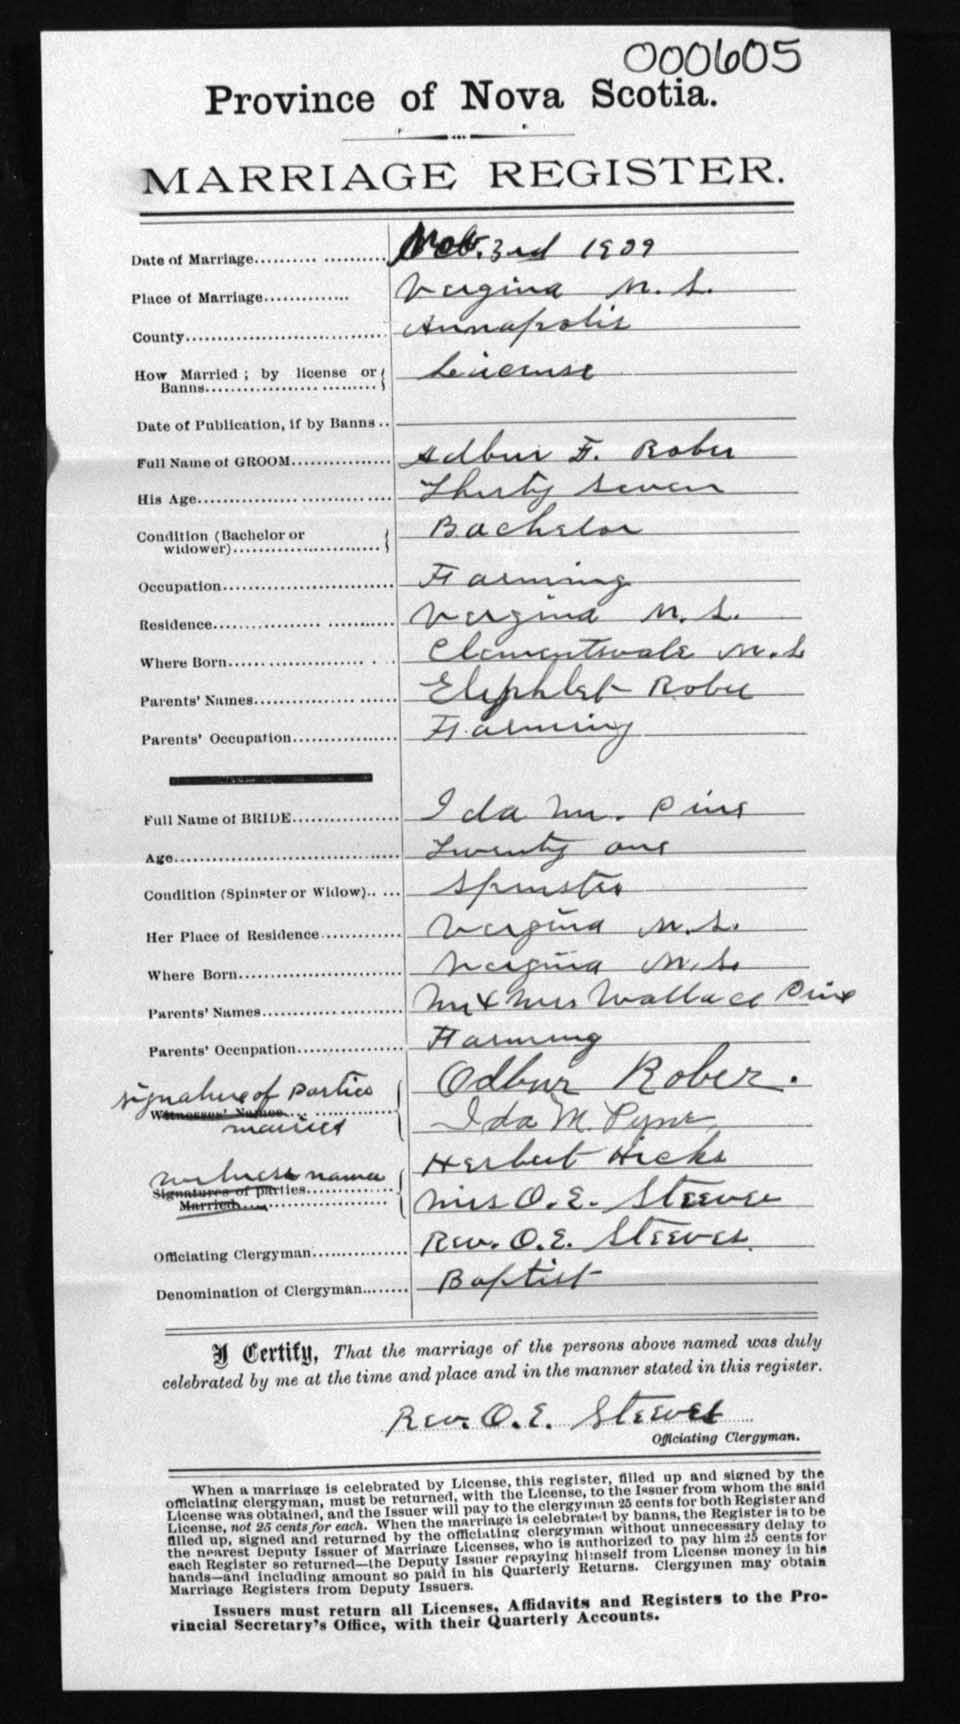 000605
Province of Nova Scotia.
MARRIAGE REGISTER.
Date of Marriage.......... 3rd 1909
Place of Marriage.............. Vergina N. S.
County.............................. Annapolis
How Married ; by license or Banns.................. License
Date of Publication, if by Banns ..
Full Name of GROOM................ Adbur F. Rober
His Age.............................. Thirty Seven
Condition (Bachelor or widower)......................... Bachelor
Occupation......................... Farming
Residence........................... Vergina N. S.
Where Born..................... Clementsvale N. S
Parents' Names..................... Eliphlet Rober
Parents' Occupation................. Farming
Full Name of BRIDE................. Ida M. Pine
Age................................... Twenty one
Condition (Spinster or Widow).. ... Spinster
Her Place of Residence............. Vergina N. S.
Where Born.......................... Vergina N. S.
Parents' Names...................... Mr & Mrs Wallace Pine
Parents' Occupation................ Farming
signature of parties
Witnesses' Names................ Odbur Rober.
married Ida M. Pyne
witness names Herbert Hicks
Signatures of parties............
Married.................... Mrs O. E. Steeves
Officiating Clergyman................ Rev. O. E. Steeves
Denomination of Clergyman........ Baptist
I Certify, That the marriage of the persons above named was duly
celebrated by me at the time and place and in the manner stated in this register.
Rev. O. E. Steeves
Officiating Clergyman.
When a marriage is celebrated by License, this register, filled up and signed by the
officiating clergyman, must be returned, with the License, to the Issuer from whom the said
License was obtained, and the Issuer will pay to the clergyman 25 cents for both Register and
License, not 25 cents for each. When the marriage is celebrated by banns, the Register is to be
filled up, signed and returned by the officiating clergyman without unnecessary delay to
the nearest Deputy Issuer of Marriage Licenses, who is authorized to pay him 25 cents for
each Register so returned—the Deputy Issuer repaying himself from License money in his
hands—and including amount so paid in his Quarterly Returns. Clergymen may obtain
Marriage Registers from Deputy Issuers.
Issuers must return all Licenses, Affidavits and Registers to the Pro-
vincial Secretary's Office, with their Quarterly Accounts.